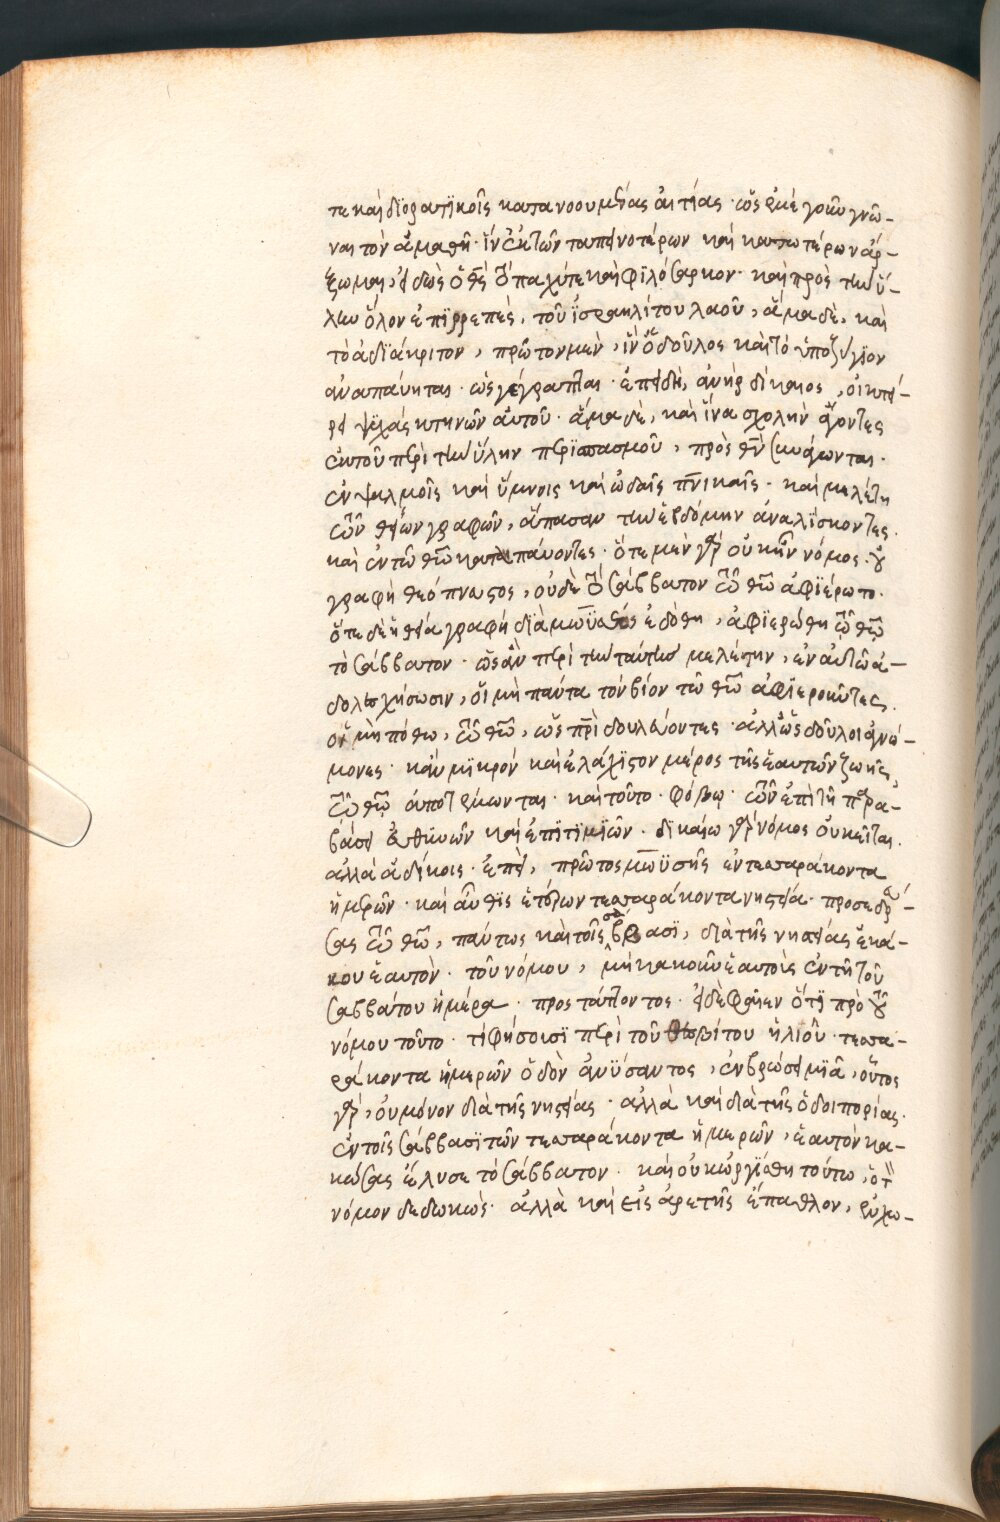 τε καὶ διορατικοῖς κατανοουμένας αἰτίας· ὡς ἐμὲ γοῦν γνῶ-
ναι τὸν ἀμαθῆ· ἵν' ἐκ τῶν ταπεινοτέρων καὶ κατωτέρων ἄρ-
ξωμαι, εἰδὼς ὁ θς̅ τὸ παχύ τε καὶ φιλόσαρκον· καὶ πρὸς τὴν ὕ-
λην ὅλον ἐπιρρεπὲς, τοῦ ἰσραηλίτου λαοῦ, ἅμα δὲ, καὶ
τὸ ἀδιάκριτον, πρῶτον μὲν, ἵν' ὁ δοῦλος καὶ τὸ ὑποζύγιον
ἀναπαύηται· ὡς γέγραπται· ἐπειδὴ, ἀνὴρ δίκαιος, οἰκτεί-
ρει ψυχὰς κτηνῶν αὐτοῦ· ἅμα δὲ, καὶ ἵνα σχολὴν ἄγοντες
ἐκ τοῦ περὶ τὴν ὕλην περισπασμοῦ, πρὸς θν̅ συνάγωνται·
ἐν ψαλμοῖς καὶ ὕμνοις καὶ ὠδαῖς πν̅ικαῖς· καὶ μελέτη
τῶν θείων γραφῶν, ἅπασαν τὴν ἑβδόμην ἀναλίσκοντες·
καὶ ἐν τῶ θῶ̅ καταπαύοντες· ὅτε μὲν γὰρ οὐκ ἦν νόμος· οὐ
γραφὴ θεόπνευστος, οὐδὲ τὸ σάββατον τῶ θῶ̅ ἀφιέρωτο·
ὅτε δὲ ἡ θεία γραφὴ διὰ μωϋσέως ἐδόθη, ἀφιερώθη τῶ θῶ̅
τὸ σάββατον· ὡς ἂν περὶ τὴν ταύτης μελέτην, ἐν αὐτῶ ἀ-
δολεσχήσωσιν, οἱ μὴ πάντα τὸν βίον τῶ θῶ̅ ἀφιεροῦντες·
οἱ μὴ πόθω, τῶ θῶ̅, ὡς πρι̅ δουλεύοντες· ἀλλ' ὡς δοῦλοι ἀγνώ-
μονες· κἂν μικρὸν καὶ ἐλάχιστον μέρος τῆς ἑαυτῶν ζωῆς,
τῶ θῶ̅ ἀποτεμωνται· καὶ τοῦτο· φόβω· τῶν ἐπὶ τῆ παρα-
βάσει εὐθυνῶν καὶ ἐπιτιμιῶν· δικαίω γὰρ νόμος οὐ κεῖται·
ἀλλὰ ἀδίκοις· ἐπεὶ, πρῶτος μωϋσῆς ἐν τεσσαράκοντα
ἡμερῶν· καὶ αὖθις ἑτέρων τεσσαράκοντα νηστεία· προσεδρεύ-
σας τῶ θῶ̅, πάντως καὶ τοῖς σάββασι, διὰ τῆς νηστείας ἐκά-
κου ἑαυτὸν· τοῦ νόμου, μὴ κακοῦν ἑαυτοὺς ἐν τῆ τοῦ
σαββάτου ἡμέρα· προστάττοντος· εἰ δὲ φαῖεν ὅτι πρὸ τοῦ
νόμου τοῦτο· τί φήσουσι περὶ τοῦ θεσβίτου ἡλιοῦ· τεσσα-
ράκοντα ἡμερῶν ὁδὸν ἀνύσαντος, ἐν βρώσει μιᾶ, οὗτος
γὰρ, οὐ μόνον διὰ τῆς νηστείας· ἀλλὰ καὶ διὰ τῆς ὁδοιπορίας·
ἐν τοῖς σάββασι τῶν τεσσαράκοντα ἡμερῶν, ἑαυτὸν κα-
κώσας ἔλυσε τὸ σάββατον· καὶ οὐκ ὠργίσθη τούτω, ὁ τὸν
νόμον δεδωκὼς· ἀλλὰ καὶ εἰς ἀρετῆς ἔπαθλον,